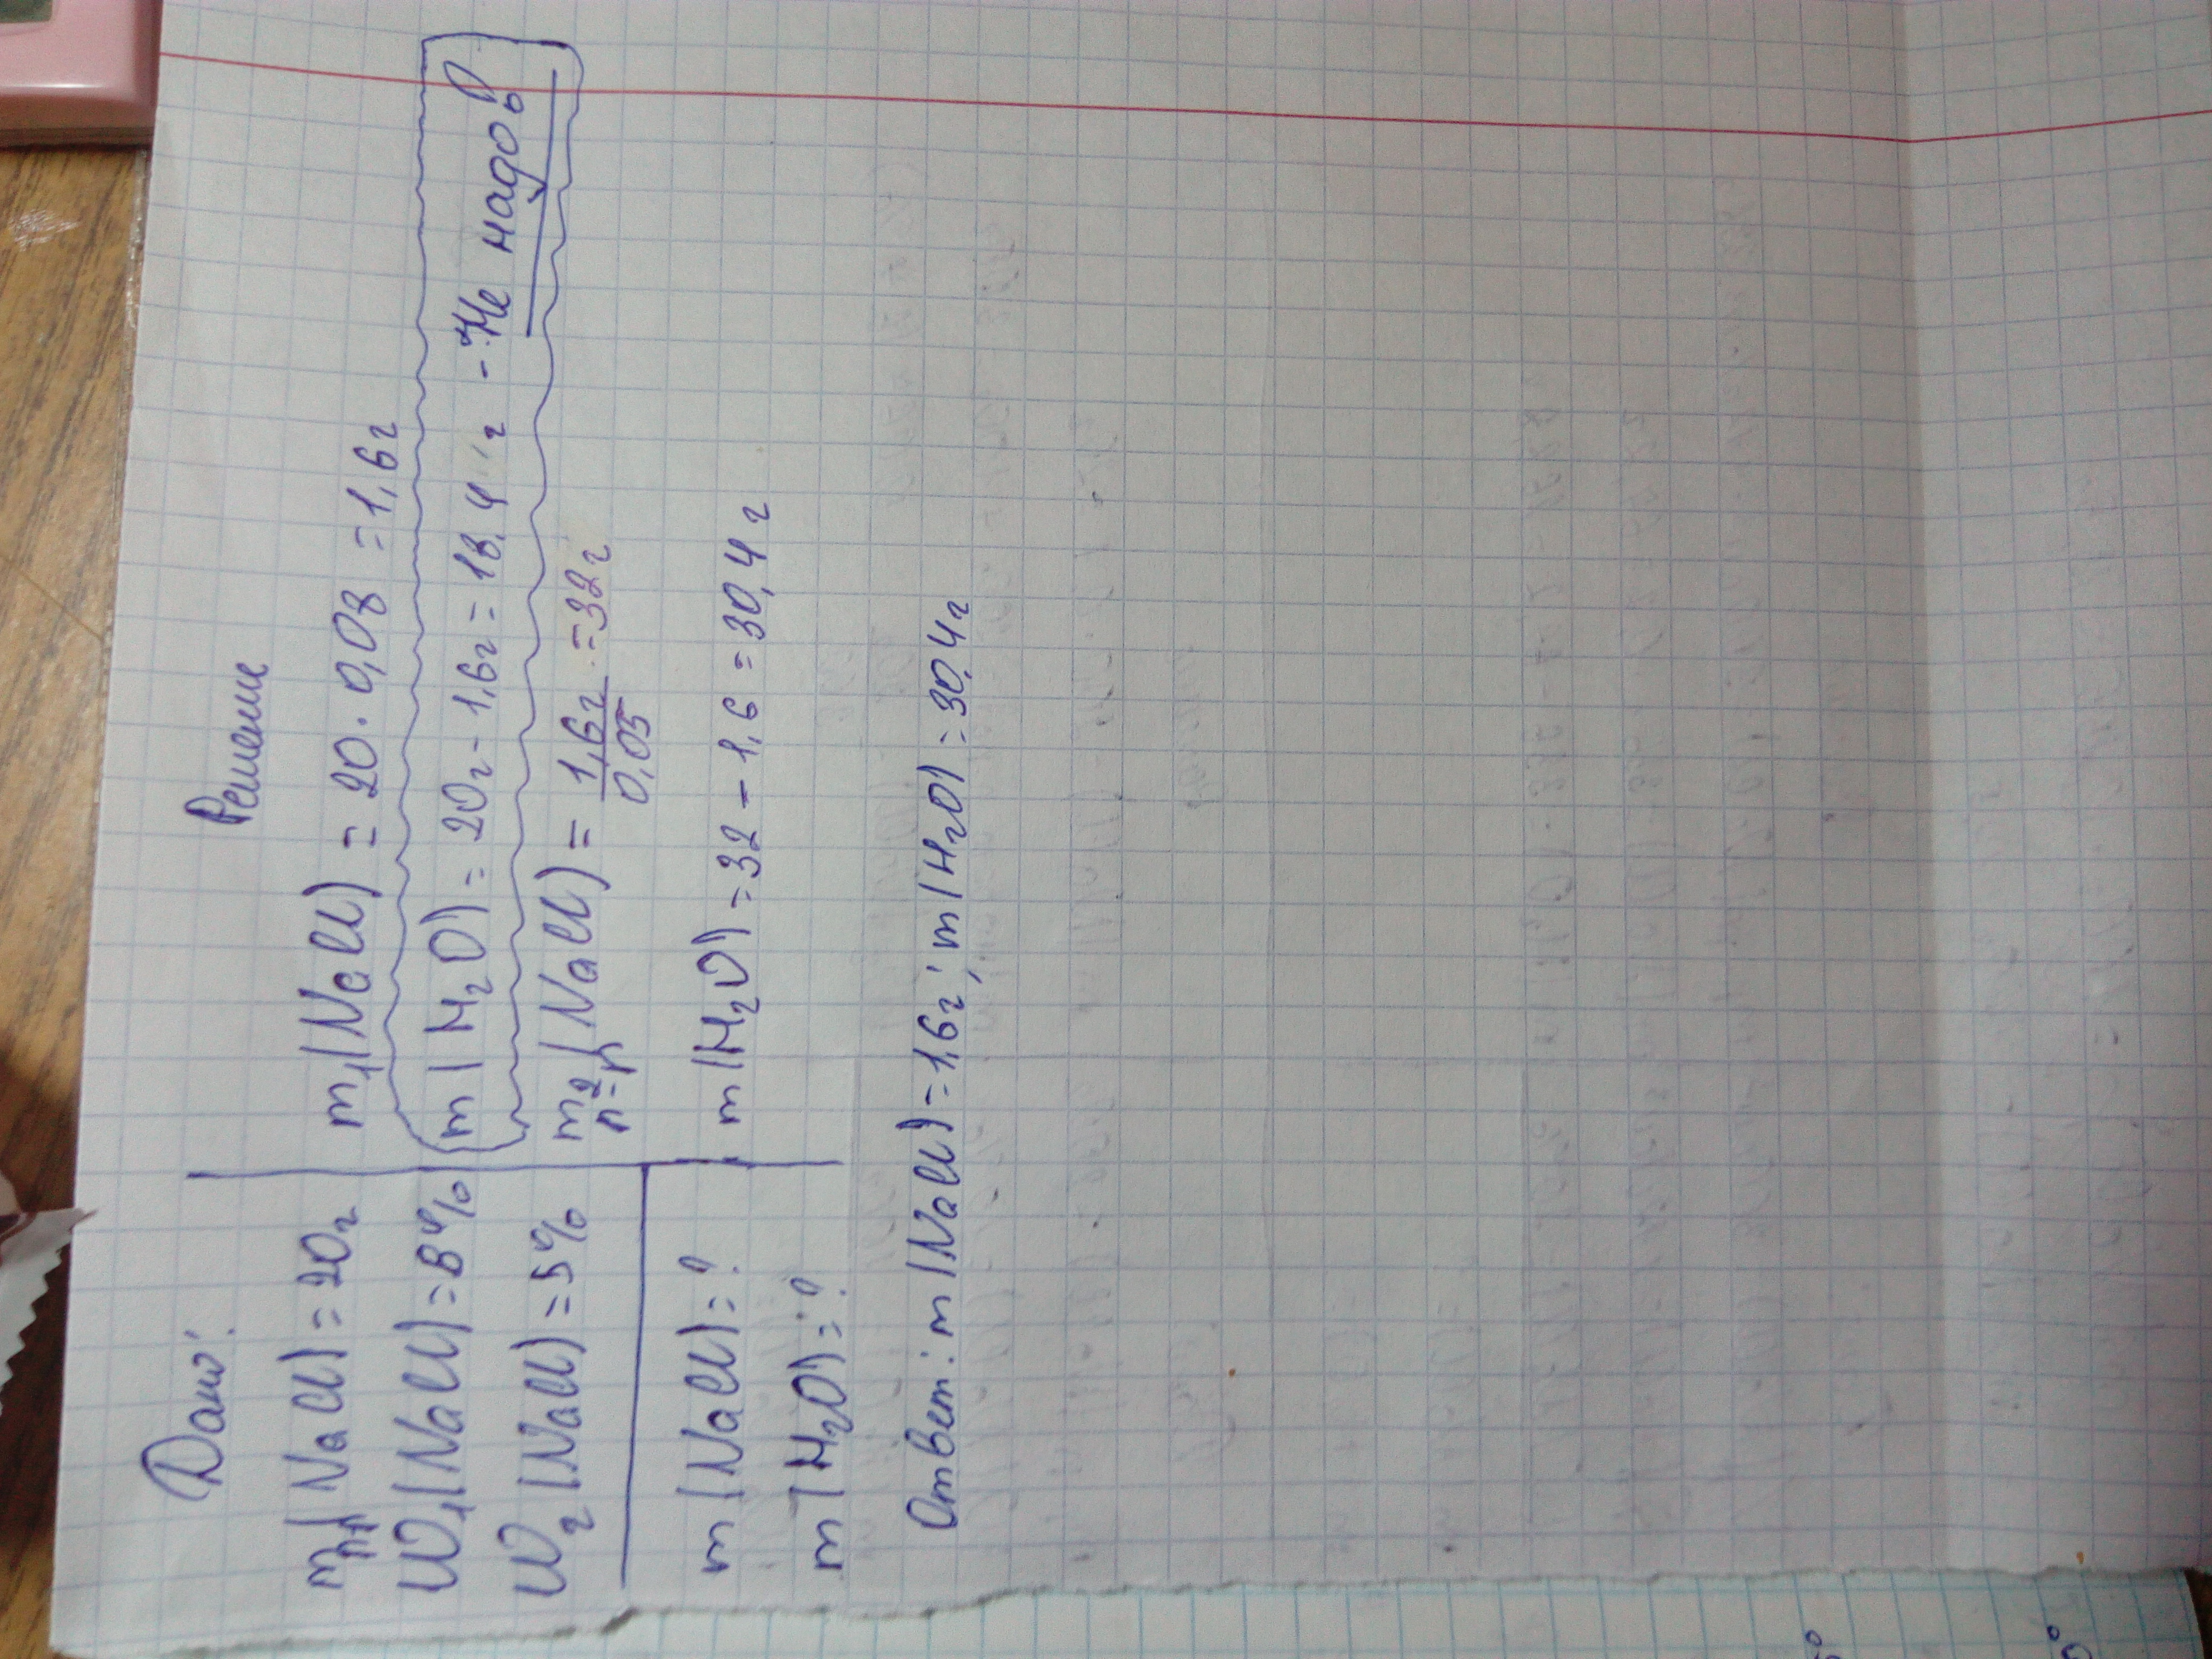 Дано:
m р-р1 (NaCl) = 20г
W₁(NaCl) = 8%
W₂(NaCl) = 5%
m(NaCl) = ?
m(H₂O) = ?
Решение
m₁(NaCl) = 20 · 0,08 = 1,6г
m(H₂O) = 20г - 1,6г = 18,4 г - Не надо
m₂ р-р (NaCl) = 1,6г / 0,05 = 32г
m(H₂O) = 32 - 1,6 = 30,4 г
Ответ: m(NaCl) = 1,6г; m(H₂O) = 30,4г